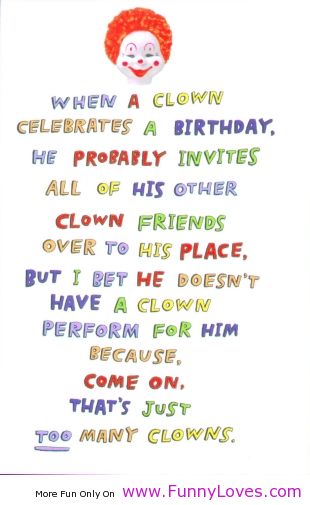 WHEN A CLOWN
CELEBRATES A BIRTHDAY,
HE PROBABLY INVITES
ALL OF HIS OTHER
CLOWN FRIENDS
OVER TO HIS PLACE,
BUT I BET HE DOESN'T
HAVE A CLOWN
PERFORM FOR HIM
BECAUSE,
COME ON,
THAT'S JUST
TOO MANY CLOWNS.
More Fun Only On www.FunnyLoves.com